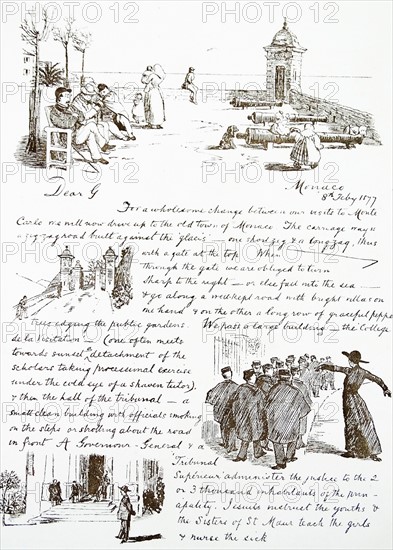 Monaco
Dear G 8th Feby 1877
For a wholesome change between our visits to Monte
Carlo one will now drive up to the old town of Monaco The carriage way is
a zigzag road built against the glacis — one short zig & a long zag, thus
with a gate at the top When
through the gate we are obliged to turn
sharp to the right — or else fall into the sea
& go along a well kept road with bright villas on
one hand & on the other a long row of graceful pepper
trees edging the public gardens. We pass a large building — the College
de la Visitation — (one often meets
towards sunset a detachment of the
scholars taking processional exercise
under the cold eye of a shaven tutor)
& then the hall of the tribunal — a
small clean building with officials smoking
on the steps or strolling about the road
in front A Governour-General & a
Tribunal
Superieur administer the justice to the 2
or 3 thousand inhabitants of the prin-
apality. Jesuits instruct the youths &
the Sisters of St Maur teach the girls
& nurse the sick
PHOTO 12